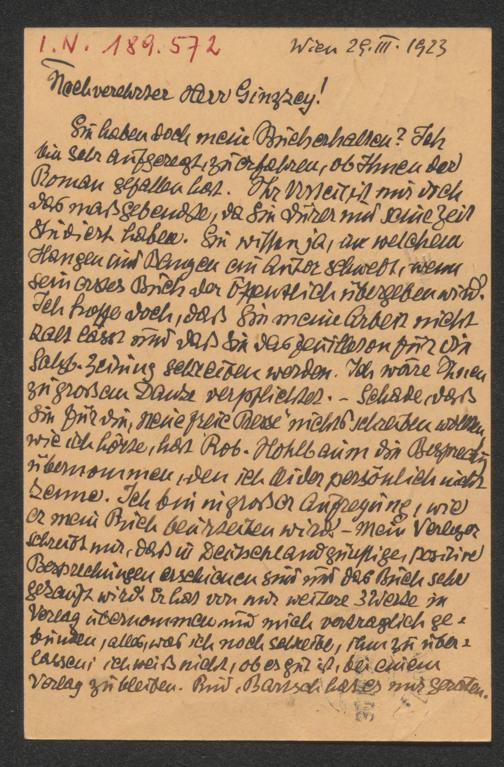 I. N. 189.572
Wien 29. III. 1923
Hochverehrter Herr Ginzkey!
Sie haben doch mein Buch erhalten? Ich
bin sehr aufgeregt, zu erfahren, ob Ihnen der
Roman gefallen hat. Ihr Urteil ist mir doch
das maßgebendste, da Sie Dürer und seine Zeit
studiert haben. Sie wissen ja, in welchem
Hangen und Bangen ein Autor schwebt, wenn
sein erstes Buch der Öffentlich übergeben wird.
Ich hoffe doch, daß Sie meine Arbeit nicht
kalt lässt und daß Sie das Feuilleton für die
Salzb. Zeitung schreiben werden. Ich wäre Ihnen
zu großem Danke verpflichtet. – Schade, daß
Sie für die „Neue freie Presse“ nichts schreiben wollen,
wie ich hörte, hat Rob. Hohlbaum die Besprech
übernommen, den ich leider persönlich nicht
kenne. Ich bin in großer Aufregung, wie
er mein Buch beurteilen wird. – Mein Verleger
schreibt mir, daß in Deutschland günstige, positive
Besprechungen erschienen sind und das Buch sehr
gekauft wird. Er hat von mir weitere 3 Werke in
Verlag übernommen und mich vertraglich ge-
bunden, alles, was ich noch schreibe, ihm zu über-
lassen; ich weiß nicht, ob es gut ist, bei einem
Verlag zu bleiben. Rud. Bartsch hat es mir geraten.